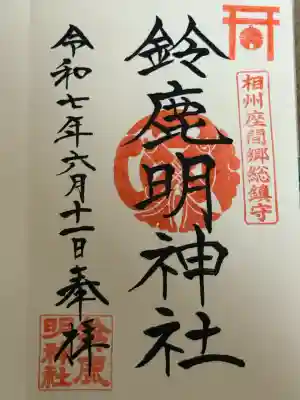 相州座間郷総鎮守
鈴鹿明神社
令和七年六月十一日奉拝
鈴鹿
明神社